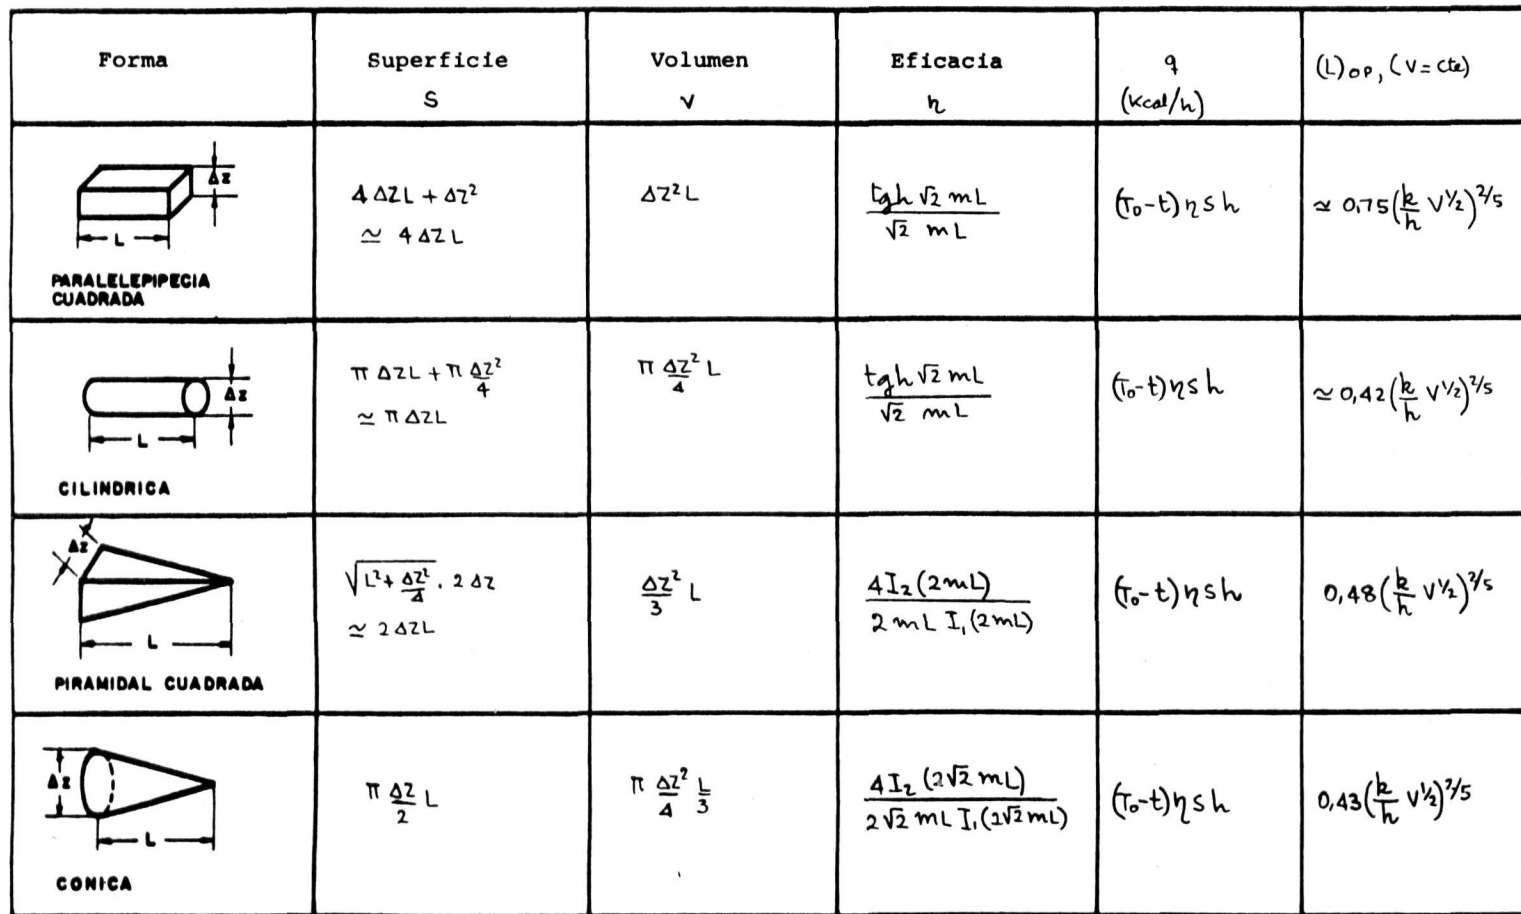 Forma
Superficie
S
Volumen
V
Eficacia
η
q
(Kcal/h)
(L)op, (V=cte)
Δz
L
PARALELEPIPECIA
CUADRADA
4 ΔZL + ΔZ²
≃ 4 ΔZ L
ΔZ² L
tgh √2 mL / √2 mL
(T₀-t) η s h
≃ 0,75 (k/h V^1/2)^2/5
Δz
L
CILINDRICA
π ΔZL + π ΔZ²/4
≃ π ΔZL
π ΔZ²/4 L
tgh √2 mL / √2 mL
(T₀-t) η s h
≃ 0,42 (k/h V^1/2)^2/5
Δz
L
PIRAMIDAL CUADRADA
√(L² + ΔZ²/4) . 2 ΔZ
≃ 2 ΔZL
ΔZ²/3 L
4 I₂ (2mL) / 2 mL I₁ (2mL)
(T₀-t) η s h
0,48 (k/h V^1/2)^2/5
Δz
L
CONICA
π ΔZ/2 L
π ΔZ²/4 L/3
4 I₂ (2√2 mL) / 2√2 mL I₁ (2√2 mL)
(T₀-t) η s h
0,43 (k/h V^1/2)^2/5